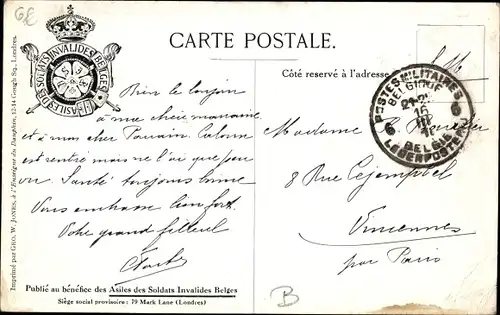 G/C
ASILES DES SOLDATS INVALIDES BELGES
CARTE POSTALE.
Côté reservé à l'adresse
S.M.
POSTES MILITAIRES
BELGIQUE
6 6
BELGIE
LEGERPOSTERIJ
Bien le bonjour
à ma chère marraine
et à mon cher Parrain.
est rentré mais ne l'ai que peu
vu. Santé toujours bonne
Vous embrasse bien fort.
Votre grand filleul
Madame
8 Rue Céjemptel
Vincennes
par Paris
Publié au bénéfice des Asiles des Soldats Invalides Belges
Siège social provisoire: 79 Mark Lane (Londres)
B
Imprimé par GEO. W. JONES, à l'Enseigne du Dauphin, Gough Sq., Londres.